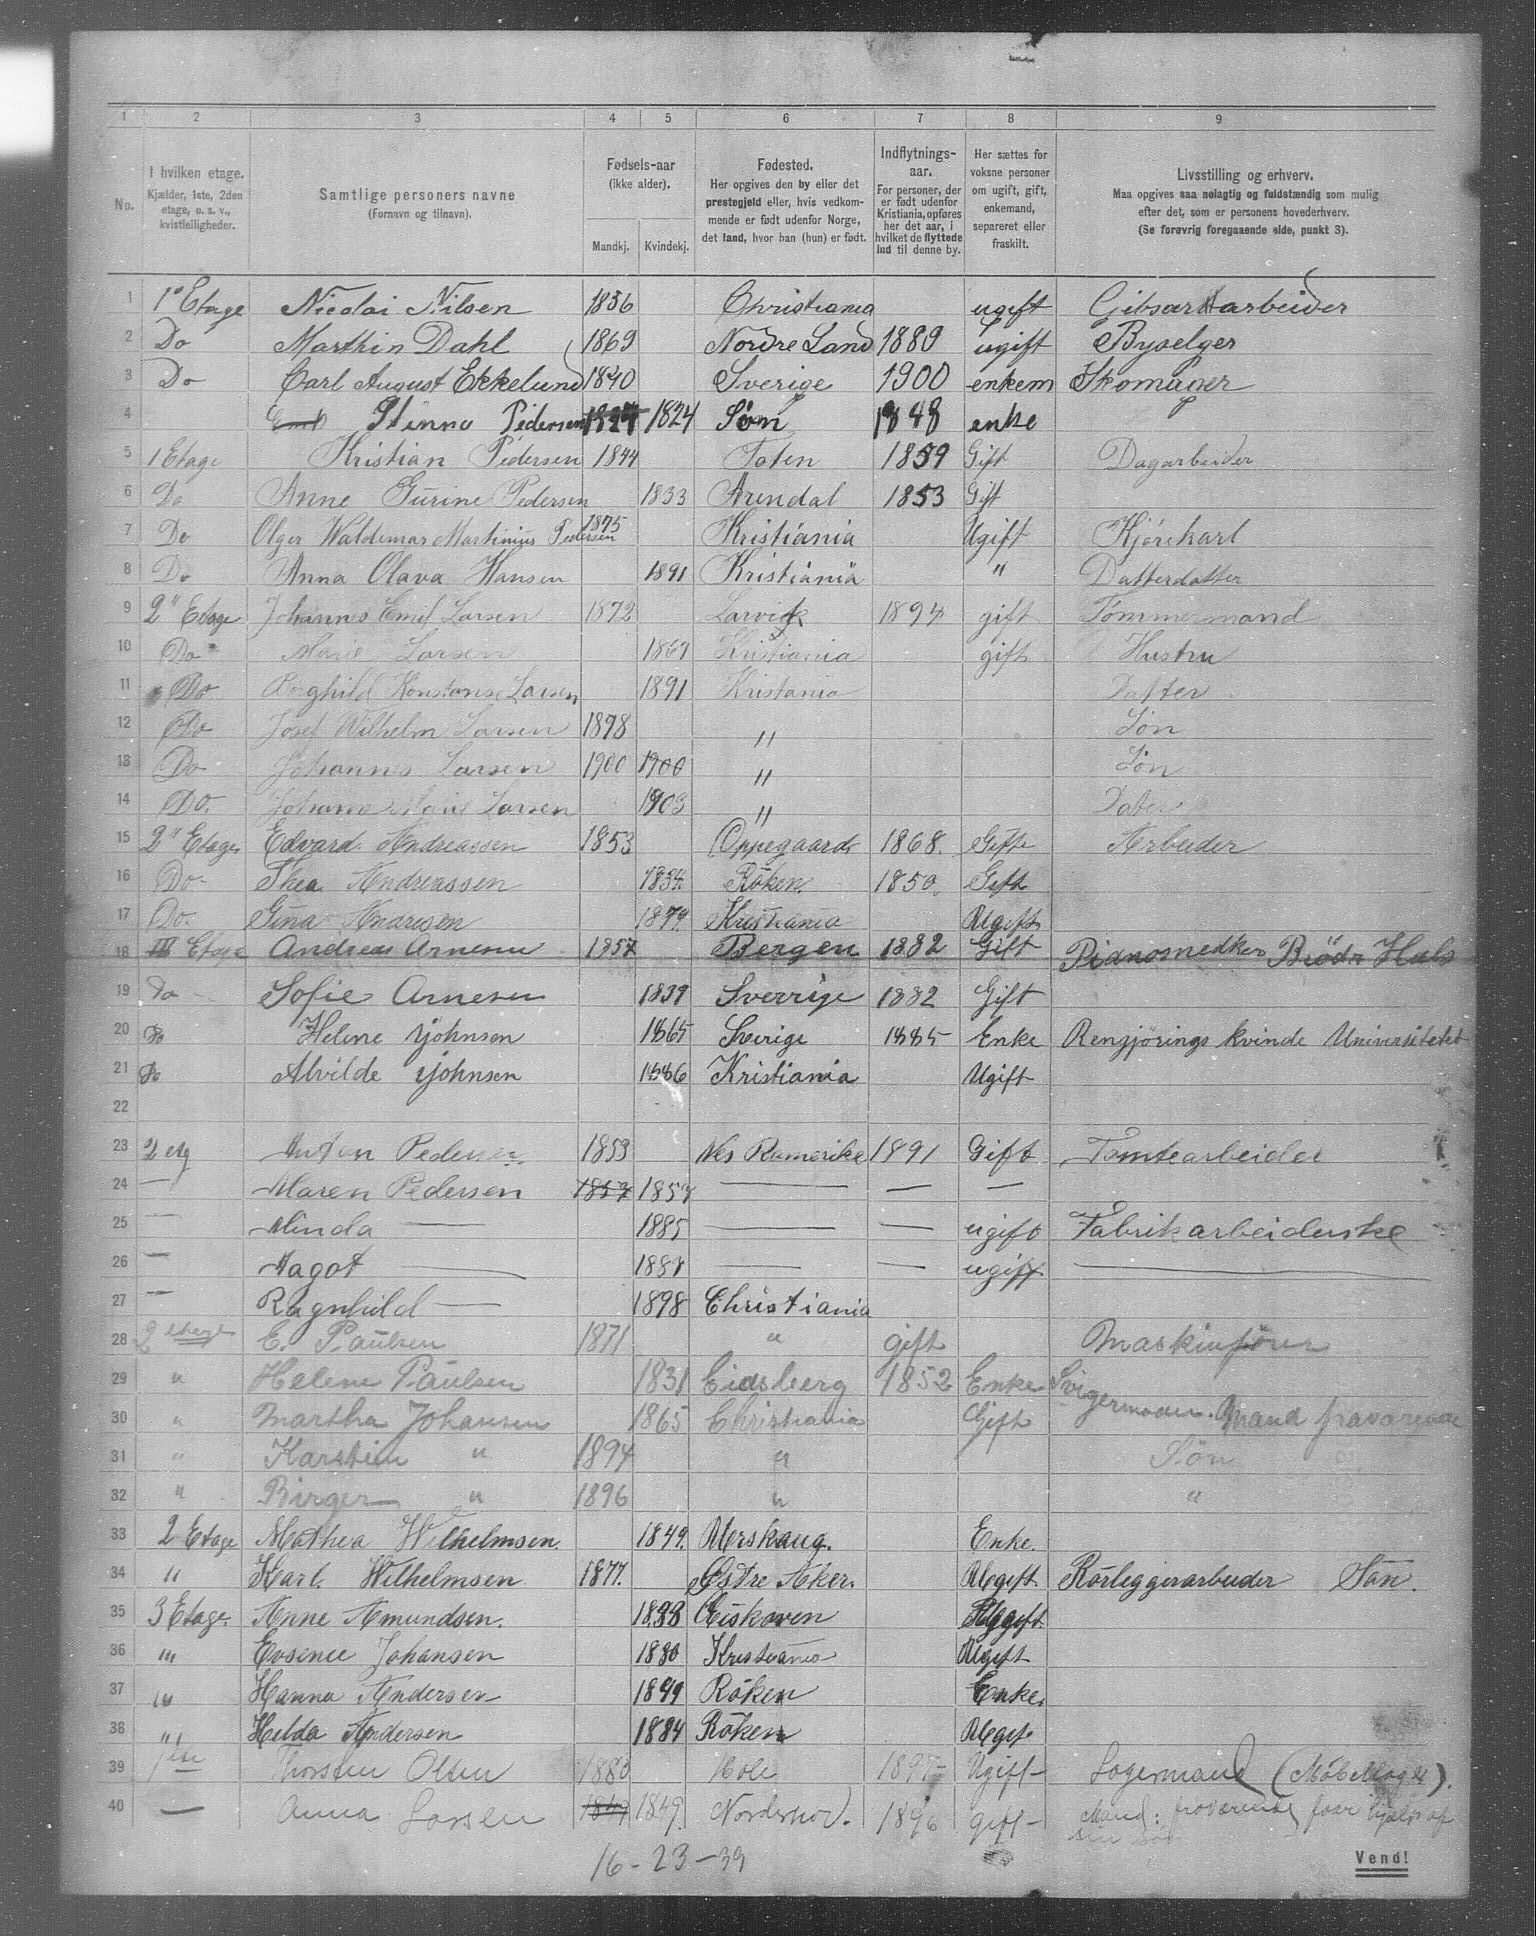 1 2 3 4 5 6 7 8 9
No.
I hvilken etage.
Kjælder, 1ste, 2den
etage, o. s. v.,
kvistleiligheder.
Samtlige personers navne
(Fornavn og tilnavn).
Fødsels-aar
(ikke alder).
Mandkj. Kvindekj.
Fødested.
Her opgives den by eller det
prestegjeld eller, hvis vedkom-
mende er født udenfor Norge,
det land, hvor han (hun) er født.
Indflytnings-
aar.
For personer, der
er født udenfor
Kristiania, opføres
her det aar, i
hvilket de flyttede
ind til denne by.
Her sættes for
voksne personer
om ugift, gift,
enkemand,
separeret eller
fraskilt.
Livsstilling og erhverv.
Maa opgives saa nøiagtig og fuldstændig som mulig
efter det, som er personens hovederhverv.
(Se forøvrig foregaaende side, punkt 3).
1 1° Etage Nicolai Nilsen 1836 Christiania ugift
2 Do Marthin Dahl 1869 Nordre Land 1889 ugift Byselger
3 Do Carl August Ekkelund 1840 Sverige 1900 enkem Skomager
4 Pedersen 1824 Søn 1848 enke
5 1 Etage Kristian Pedersen 1844 Toten 1859 Gift Dagarbeider
6 Do Anne Gurine Pedersen 1833 Arendal 1853 Gift
7 Do Olger Waldemar Martinius Pedersen 1875 Kristiania Ugift Kjørekarl
8 Do Anna Olava Hansen 1891 Kristiania " Datterdatter
9 2" Etage Johannes Emil Larsen 1872 Larvick 1894 gift Tømmermand
10 Do Marie Larsen 1867 Kristiania gift Hustru
11 Do Borghild Konstanse Larsen 1891 Kristania Datter
12 Do Josef Wilhelm Larsen 1898 " Søn
13 Do Johannes Larsen 1900 1900 " Søn
14 Do. Johanne Marie Larsen 1903 " Dater
15 2" Etage Edvard Andreassen 1853 Oppegaard 1868. Gift Arbeider
16 Do Thea Andreassen 1854 Røken 1850. Gift
17 Do. Gina Andresen 1879. Kristiania Ugift
18 III Etage Andreas Arnesen 1857 Bergen 1882 Gift Pianosnedker Brødr Hals
19 Do Sofie Arnesen 1839 Sverrige 1882 Gift
20 Do Helene Johnsen 1865 Sverige 1885 Enke Rengjørings kvinde Universitetet
21 Do Alvilde Johnsen 1886 Kristiania Ugift
22
23 2 etg Anton Pedersen 1853 Nes Romerike 1891 Gift Tomtearbeider
24 — Maren Pedersen 1857 1857 — — —
25 — Minda — 1885 — — ugift Fabrikarbeiderske
26 — Magot — 1887 — — ugift —
27 — Ragnhild — 1898 Christiania
28 2 etage E. Paulsen 1871 " gift Maskinfører
29 " Helene Paulsen 1831 Eidsberg 1852 Enke Svigermoder.
30 " Martha Johansen 1865 Christiania Gift Mand fraværende
31 " Karstein " 1894 " Søn
32 " Birger " 1896 " "
33 2 Etage Mathea Wilhelmsen. 1849. Urskaug. Enke.
34 " Karl. Wilhelmsen 1877. Østre Aker. Ugift Rørleggerarbeider Søn.
35 3 Etage. Anne Amundsen. 1838 Ugift.
36 " Johansen 1880 Kristiania Ugift
37 " Hanna Andersen 1849 Røken Enke.
38 " Helda Andersen 1884 Røken Ugift
39 1ste Thorsten Olsen 1880 Hole 1895 Ugift Lagermand (Møbellager).
40 — Anna Larsen 1849 1849. Norderhov. 1896 gift Mand: fraværende faar hjælp af
sin søn
16 - 23 - 39
Vend!